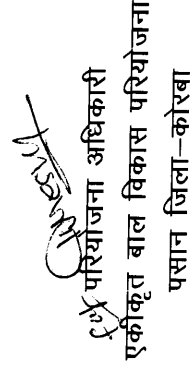 परियोजना अधिकारी
एकीकृत बाल विकास परियोजना
पसान जिला–कोरबा